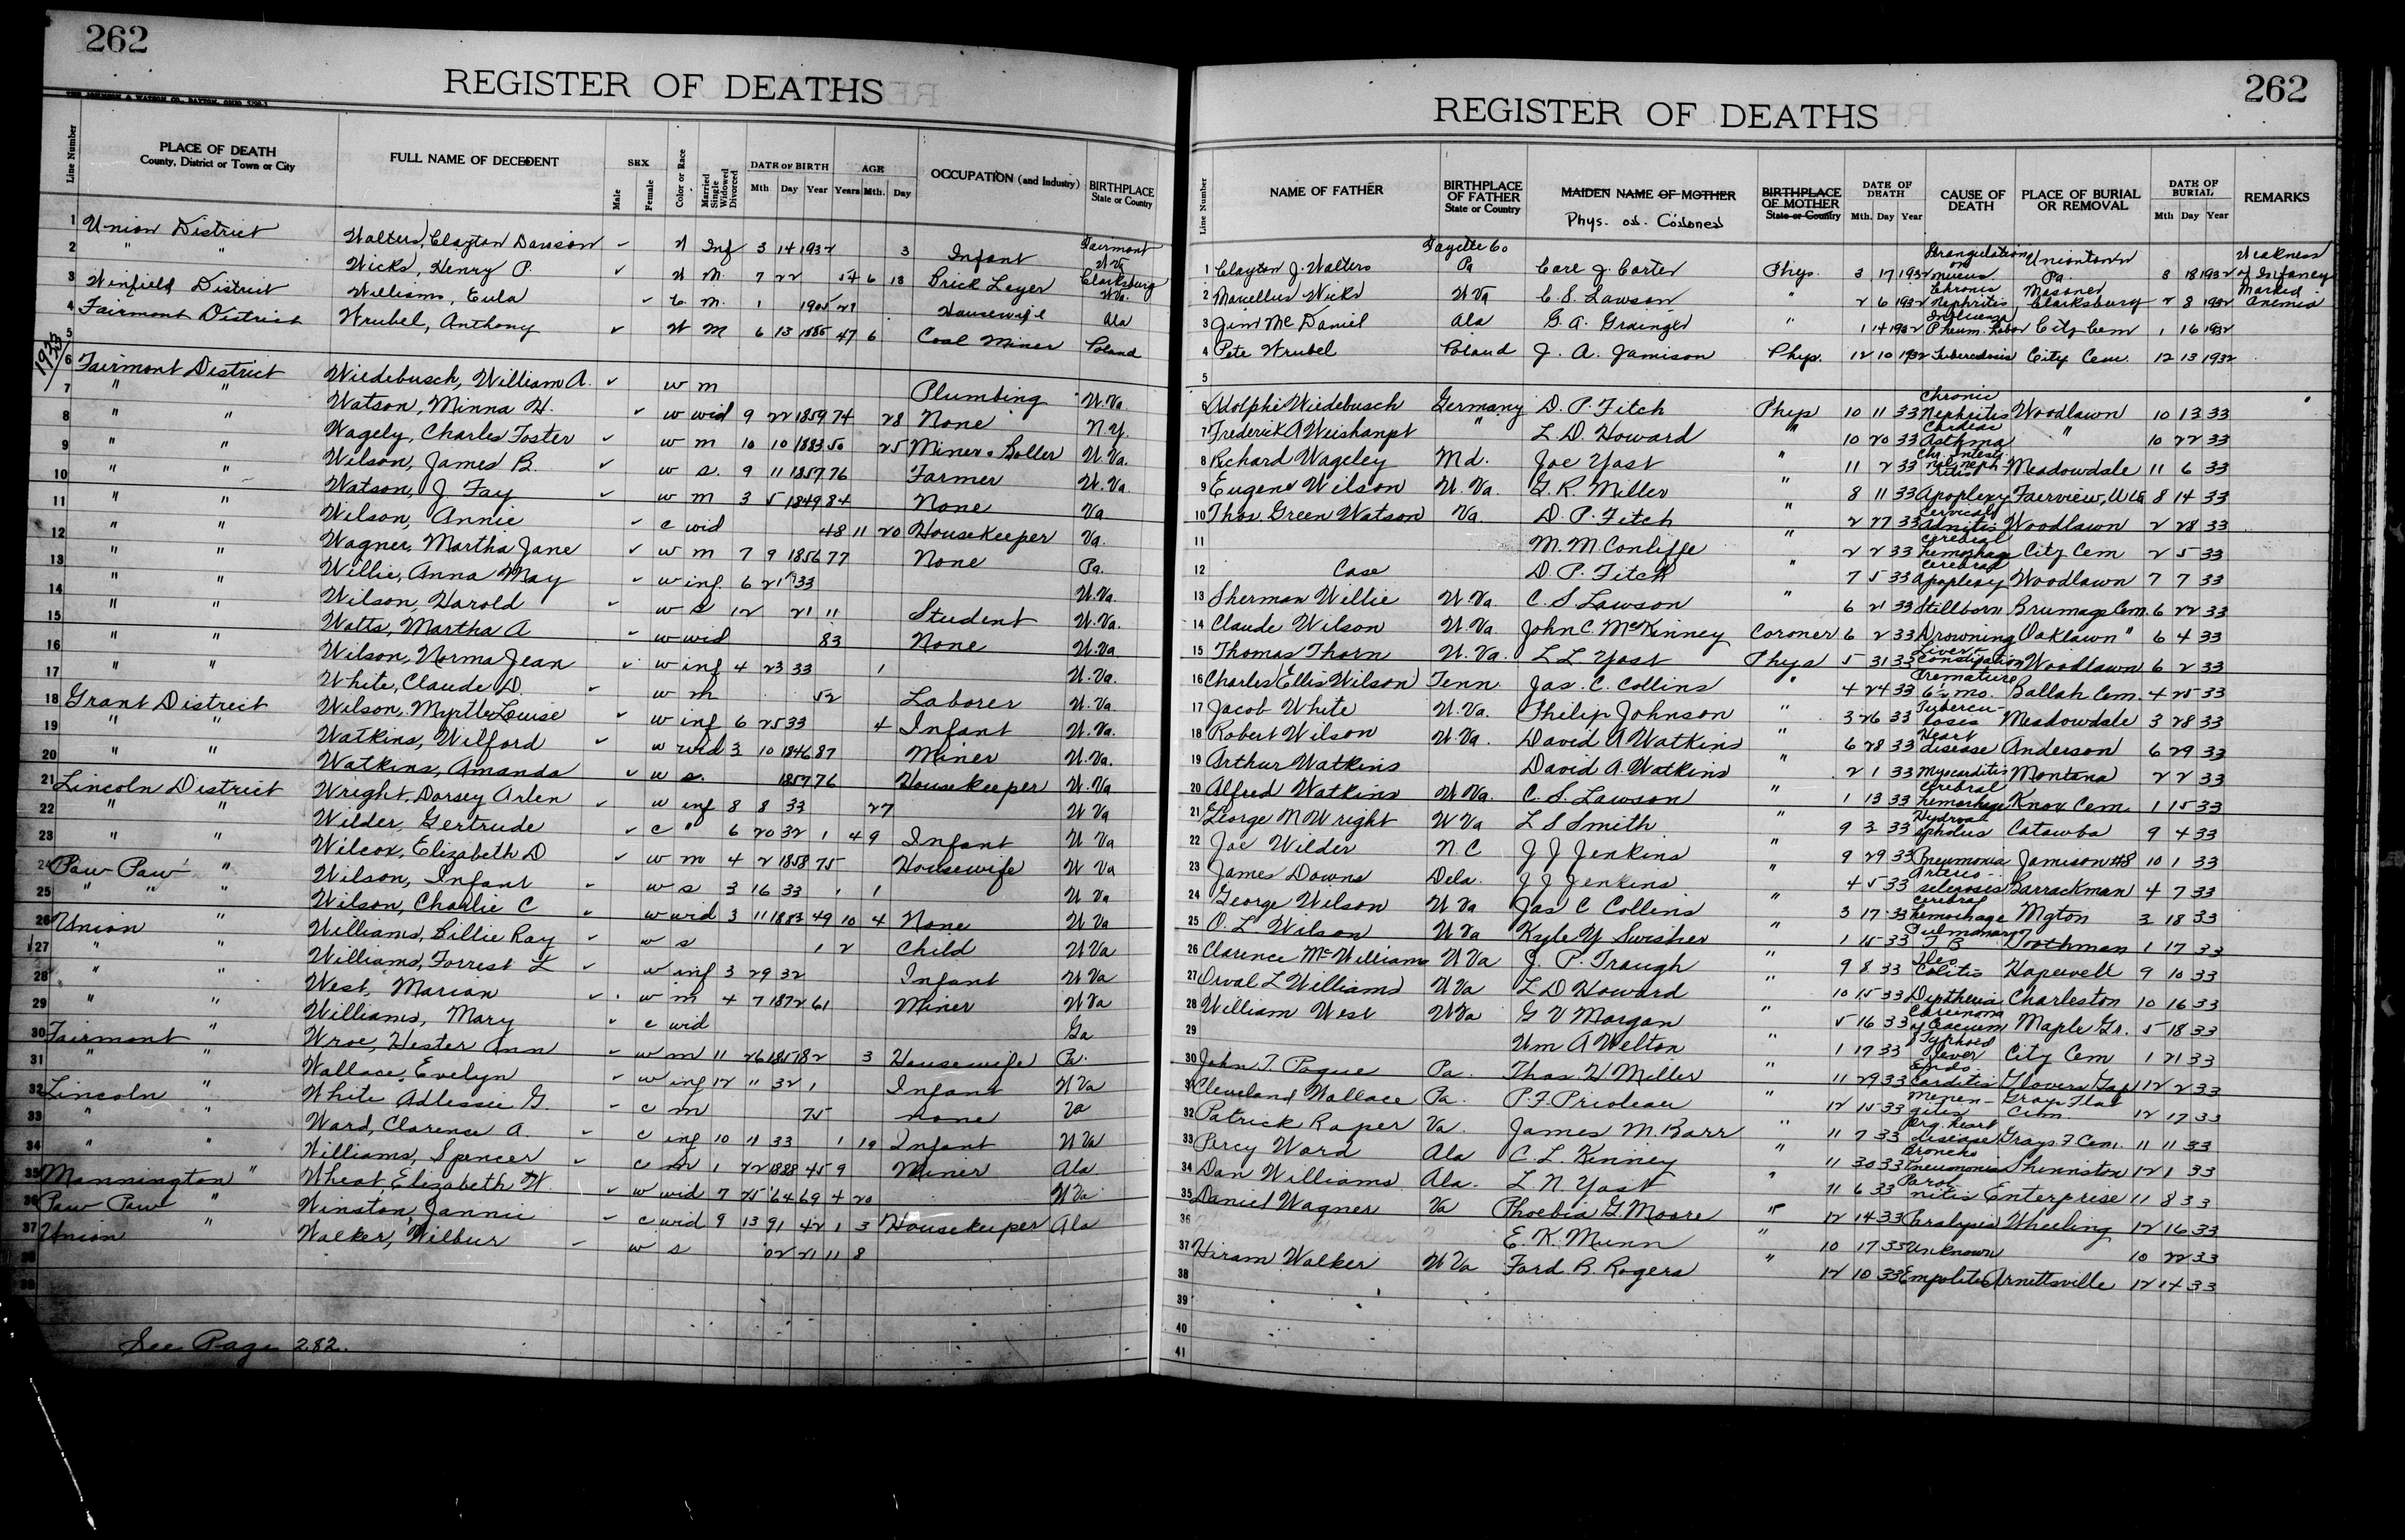 262
REGISTER OF DEATHS
Line Number
PLACE OF DEATH
County, District or Town or City
FULL NAME OF DECEDENT
SEX
Male
Female
Color or Race
Married Single Widowed Divorced
DATE OF BIRTH
Mth. Day Year
AGE
Years Mth. Day
OCCUPATION (and Industry)
BIRTHPLACE
State or Country
1 Union District Walters, Clayton Dawson ✓ W Inf 3 14 1932 3 Infant Fairmont W Va
2 " " Wicks, Henry P. ✓ W M. 7 22 54 6 13 Brick Layer Clarksburg W Va.
3 Winfield District Williams, Eula ✓ C M. 1 1905 27 Housewife Ala
4 Fairmont District Wrubel, Anthony ✓ W M 6 13 1885 47 6 Coal Miner Poland
5
1933
6 Fairmont District Wiedebusch, William A. ✓ w m Plumbing W. Va.
7 " " Watson, Minna H. ✓ w wid 9 22 1859 74 28 None N.Y.
8 " " Wagely, Charles Foster ✓ w m 10 10 1883 50 25 Miner W. Va.
9 " " Wilson, James B. ✓ w s. 9 11 1857 76 Farmer W. Va.
10 " " Watson, J. Fay ✓ w m 3 5 1849 84 None Va
11 " " Wilson, Annie ✓ c wid 48 11 20 Housekeeper Va.
12 " " Wagner, Martha Jane ✓ w m 7 9 1856 77 None Pa.
13 " " Willie, Anna May ✓ w inf. 6 21 33 W. Va.
14 " " Wilson, Harold ✓ w s 12 21 11 Student W. Va.
15 " " Watts, Martha A ✓ w wid 83 None W. Va
16 " " Wilson, Norma Jean ✓ w inf 4 23 33 1 W. Va.
17 " " White, Claude D. ✓ w m 52 Laborer W. Va
18 Grant District Wilson, Myrtle Louise ✓ w inf 6 25 33 4 Infant W. Va.
19 " " Watkins, Wilford ✓ w wid 3 10 1846 87 Miner W. Va.
20 " " Watkins, Amanda ✓ w s. 1857 76 Housekeeper W. Va
21 Lincoln District Wright, Dorsey Arlen ✓ w inf 8 8 33 27 W Va
22 " " Wilder, Gertrude ✓ c " 6 20 32 1 4 9 Infant W Va
23 " " Wilcox, Elizabeth D ✓ w m 4 2 1858 75 Housewife W Va
24 Paw Paw " Wilson, Infant ✓ w s 3 16 33 1 1 W Va
25 " " " Wilson, Charlie C ✓ w wid 3 11 1883 49 10 4 None W Va
26 Union " Williams, Billie Ray ✓ w s 1 2 Child W Va
27 " " Williams, Forrest L ✓ w inf 3 29 32 Infant W Va
28 " " West, Marion ✓ w m 4 7 1872 61 Miner W Va
29 " " Williams, Mary ✓ c wid Ga
30 Fairmont " Wroe, Hester Ann ✓ w m 11 26 1851 82 3 Housewife Pa.
31 " " Wallace, Evelyn ✓ w inf 12 11 32 1 Infant W Va
32 Lincoln " White Adlessie G. ✓ c m 75 none Va
33 " " Ward, Clarence A. ✓ c inf 10 11 33 1 19 Infant W Va
34 " " Williams, Spencer ✓ c m 1 22 1888 45 9 Miner Ala
35 Mannington " Wheat, Elizabeth W. ✓ w wid 7 25 '64 69 4 20 W Va
36 Paw Paw " Winston, Jannie ✓ c wid 9 13 91 42 1 3 Housekeeper Ala
37 Union Walker, Wilbur ✓ w s '02 21 11 8
38
39
See Page 282.
262
REGISTER OF DEATHS
Line Number
NAME OF FATHER
BIRTHPLACE OF FATHER
State or Country
MAIDEN NAME OF MOTHER
Phys. or Coroner
BIRTHPLACE OF MOTHER
State or Country
DATE OF DEATH
Mth. Day Year
CAUSE OF DEATH
PLACE OF BURIAL OR REMOVAL
DATE OF BURIAL
Mth Day Year
REMARKS
1 Clayton J. Walters Fayette Co Pa Carl J. Carter Phys. 3 17 1932 Strangulation on mucus Uniontown Pa. 3 18 1932 Weakness of Infancy
2 Marcellus Wicks W Va C. S. Lawson " 2 6 1932 Chronic Nephritis Masonic Clarksburg 2 8 1932 Marked anemia
3 Jim McDaniel Ala G. A. Grainger " 1 14 1932 Influenza Pneum. Lobar City Cem 1 16 1932
4 Pete Wrubel Poland J. A. Jamison Phys. 12 10 1932 Tuberculosis City Cem. 12 13 1932
5
6 Adolphe Wiedebusch Germany D. P. Fitch Phys 10 11 33 Chronic Nephritis Woodlawn 10 13 33
7 Frederick A Weishampt " L. D. Howard " 10 20 33 Cardiac Asthma " 10 22 33
8 Richard Wageley Md. Joe Yost " 11 2 33 Chr. Intersti- tial neph- ritis Meadowdale 11 6 33
9 Eugene Wilson W. Va. G. R. Miller " 8 11 33 Apoplexy Fairview, W Va 8 14 33
10 Thos. Green Watson Va. D. P. Fitch " 2 27 33 Cervical Adnitis Woodlawn 2 28 33
11 M. M. Conliffe " 2 2 33 Cerebral hemorhage City Cem 2 5 33
12 Case D. P. Fitch " 7 5 33 Cerebral Apoplexy Woodlawn 7 7 33
13 Sherman Willie W. Va. C. S Lawson " 6 21 33 Stillborn Brumage Cem. 6 22 33
14 Claude Wilson W. Va John C. McKinney Coroner 6 2 33 Drowning Oaklawn " 6 4 33
15 Thomas Thorn W. Va. L L Yost Phys 5 31 33 Liver & Constipation Woodlawn 6 2 33
16 Charles (Ellis Wilson) Tenn. Jas. C. Collins " 4 24 33 Premature 6½ mo. Ballah Cem. 4 25 33
17 Jacob White W. Va. Philip Johnson " 3 26 33 Tubercu- losis Meadowdale 3 28 33
18 Robert Wilson W. Va. David A Watkins " 6 28 33 Heart disease Anderson 6 29 33
19 Arthur Watkins David A. Watkins " 2 1 33 Myocarditis Montana 2 2 33
20 Alfred Watkins W. Va. C. S. Lawson " 1 13 33 Cerebral hemorhage Knox Cem. 1 15 33
21 George N Wright W Va L S Smith " 9 3 33 Hydroce- pholus Catawba 9 4 33
22 Joe Wilder N C J J Jenkins " 9 29 33 Pneumonia Jamison #8 10 1 33
23 James Downs Dela. J J Jenkins " 4 5 33 Arterio- sclerosis Barrackman 4 7 33
24 George Wilson W Va Jas C Collins " 3 17 33 Cerebral hemorhage Mgton 3 18 33
25 O. L Wilson W Va Kyle Y Swisher " 1 15 33 Pulmonary T B Toothman 1 17 33
26 Clarence McWilliams W Va J. P. Trough " 9 8 33 Ileo Colitis Hopewell 9 10 33
27 Orval L Williams W Va L D Howard " 10 15 33 Diptheria Charleston 10 16 33
28 William West W Va G V Morgan " 5 16 33 Carcinoma of Caecum Maple Gr. 5 18 33
29 Wm A Welton " 1 17 33 Typhoid fever City Cem 1 21 33
30 John T. Pogue Pa. Thos. H Miller " 11 29 33 Endo- carditis Glovers Gap 12 2 33
31 Cleveland Wallace Pa. P. F. Prioleau " 12 15 33 Menen- gitis Grays Flat Cem. 12 17 33
32 Patrick Roper Va. James M. Barr " 11 7 33 Org. heart disease Grays F Cem. 11 11 33
33 Percy Ward Ala C. L. Kinney " 11 30 33 Broncho Pneumonia Shinnston 12 1 33
34 Dan Williams Ala. L. N. Yost " 11 6 33 Enterprise 11 8 33
35 Daniel Wagner Va Phoebia G. Moore " 12 14 33 Paralysis Wheeling 12 16 33
36 E. K. Munn " 10 17 33 Unknown 10 22 33
37 Hiram Walker W Va Ford. B. Rogers " 12 10 33 Arnettsville 12 14 33
38
39
40
41